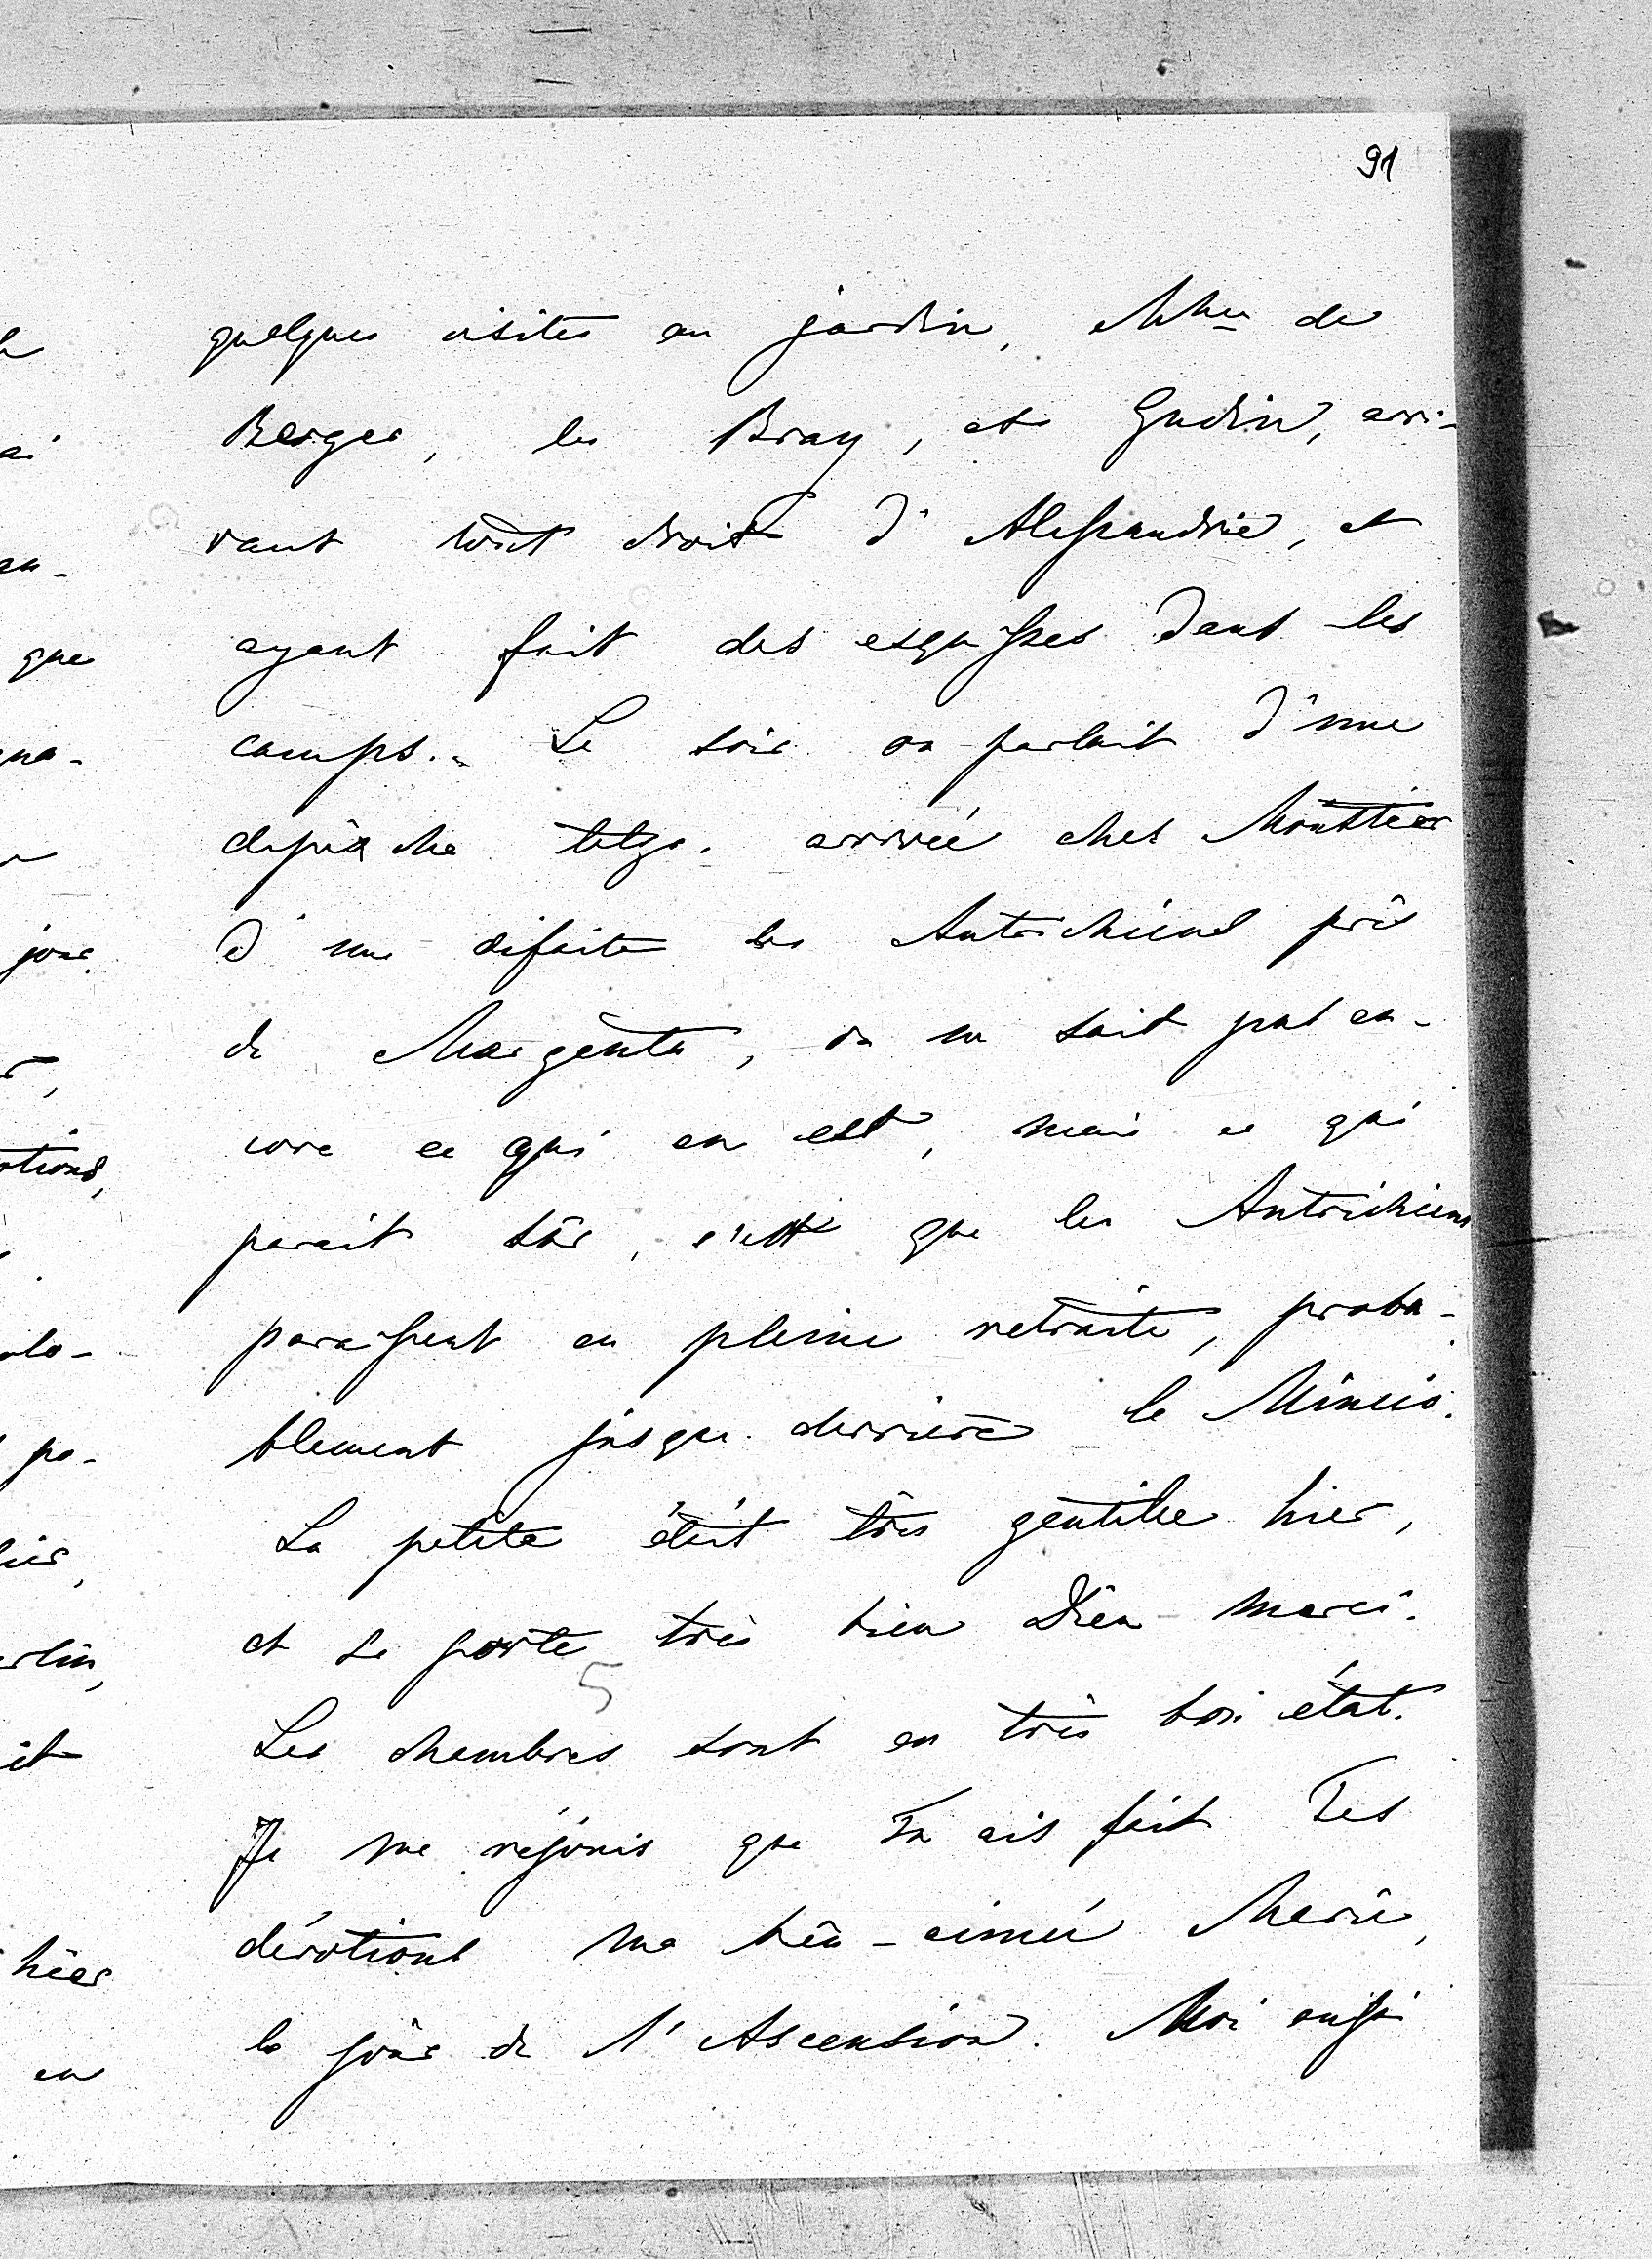 91
quelques visites au jardin, Mme de
Berger, les Bray, et Gudin, arri-
vant tout droit d'Alessandrie, et
ayant fait des esquisses dans les
camps.- Le soir on parlait d'une
dépêche télégr. arrivée chez Moustier
d'une défaite des Autrichiens près
de Margenta, on ne sait pas en-
core ce qui en est, mais ce qui
parait sûr, c'est que les Autrichiens
paraissent en pleine retraite, proba-
blement jusque derrière le Mincio.
La petite était très gentille hier,
et se porte très bien Dieu merci.
5
Les chambres sont en très bon état.
Je me réjouis que Tu ais fait Tes
dévotions ma bien-aimée Marie,
le jour de l'Ascension. Moi aussi
que
jour
otions,
erlin,
hier
en